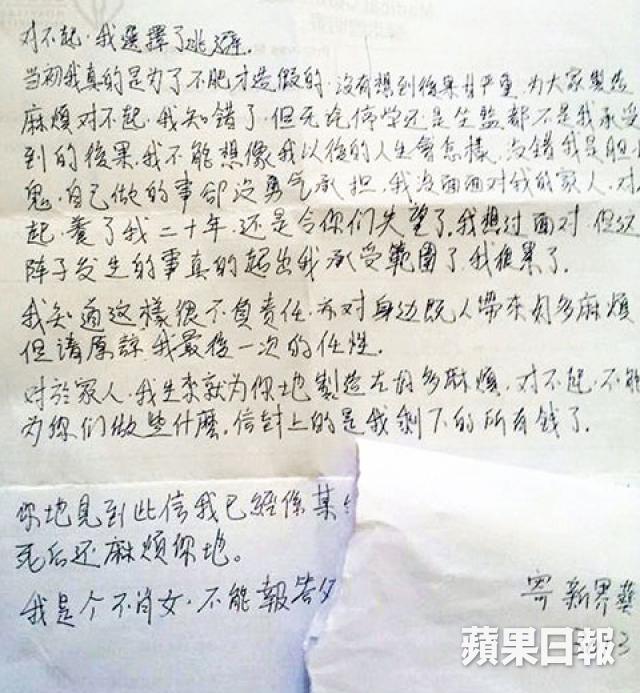 对不起，我選擇了逃避。
当初我真的是为了不肥才造假的，没有想到後果甘严重，为大家製造
麻煩对不起，我知错了，但无论停学还是坐监都不是我承受
到的後果，我不能想像我以後的人生會怎樣，没错我是胆小
鬼，自己做的事却没勇气承担，我没面面对我的家人，对
起，養了我二十年，还是令你们失望了，我想过面对，但这
阵子发生的事真的超出我承受範圍了，我很累了。
我知道这樣很不负责任，亦对身边既人帶來好多麻煩
但请原諒我最後一次的任性。
对於家人，我生來就为你地製造左好多麻煩，对不起，不能
为你们做些什麼，信封上的是我剩下的所有钱了。
你地見到此信我已經係某
死后还麻煩你地。
我是个不肖女，不能報答
寄 新界葵
蘋果日報